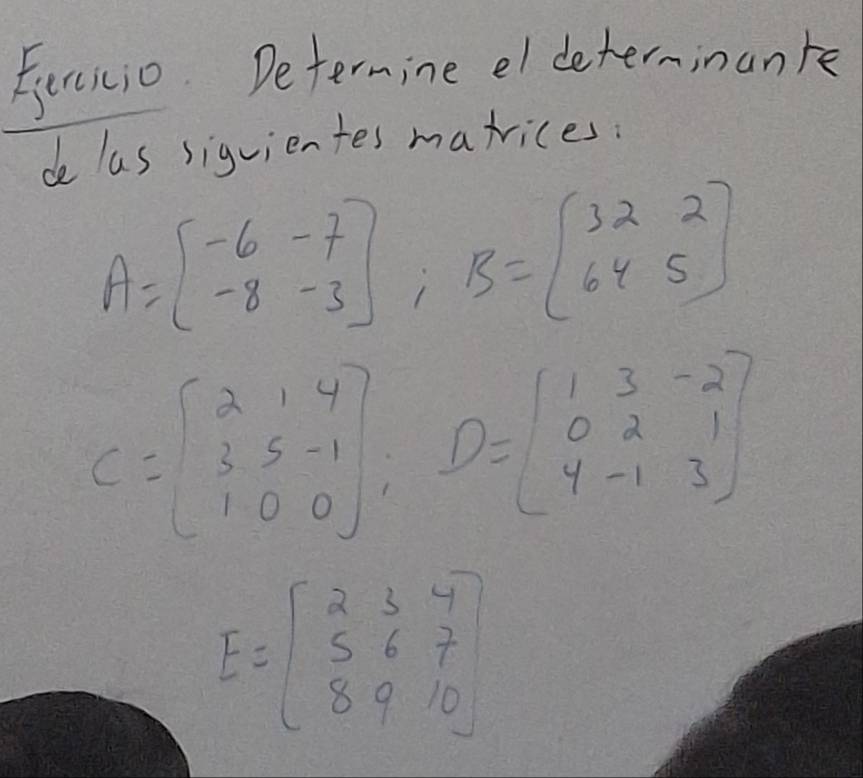 Ejercicio. Determine el determinante
de las siguientes matrices:
A = [ -6 -7 ; B = [ 32 2
-8 -3 ] 64 5 ]
C = [ 2 1 4 ; D = [ 1 3 -2
3 5 -1 0 2 1
1 0 0 ] 4 -1 3 ]
E = [ 2 3 4
5 6 7
8 9 10 ]